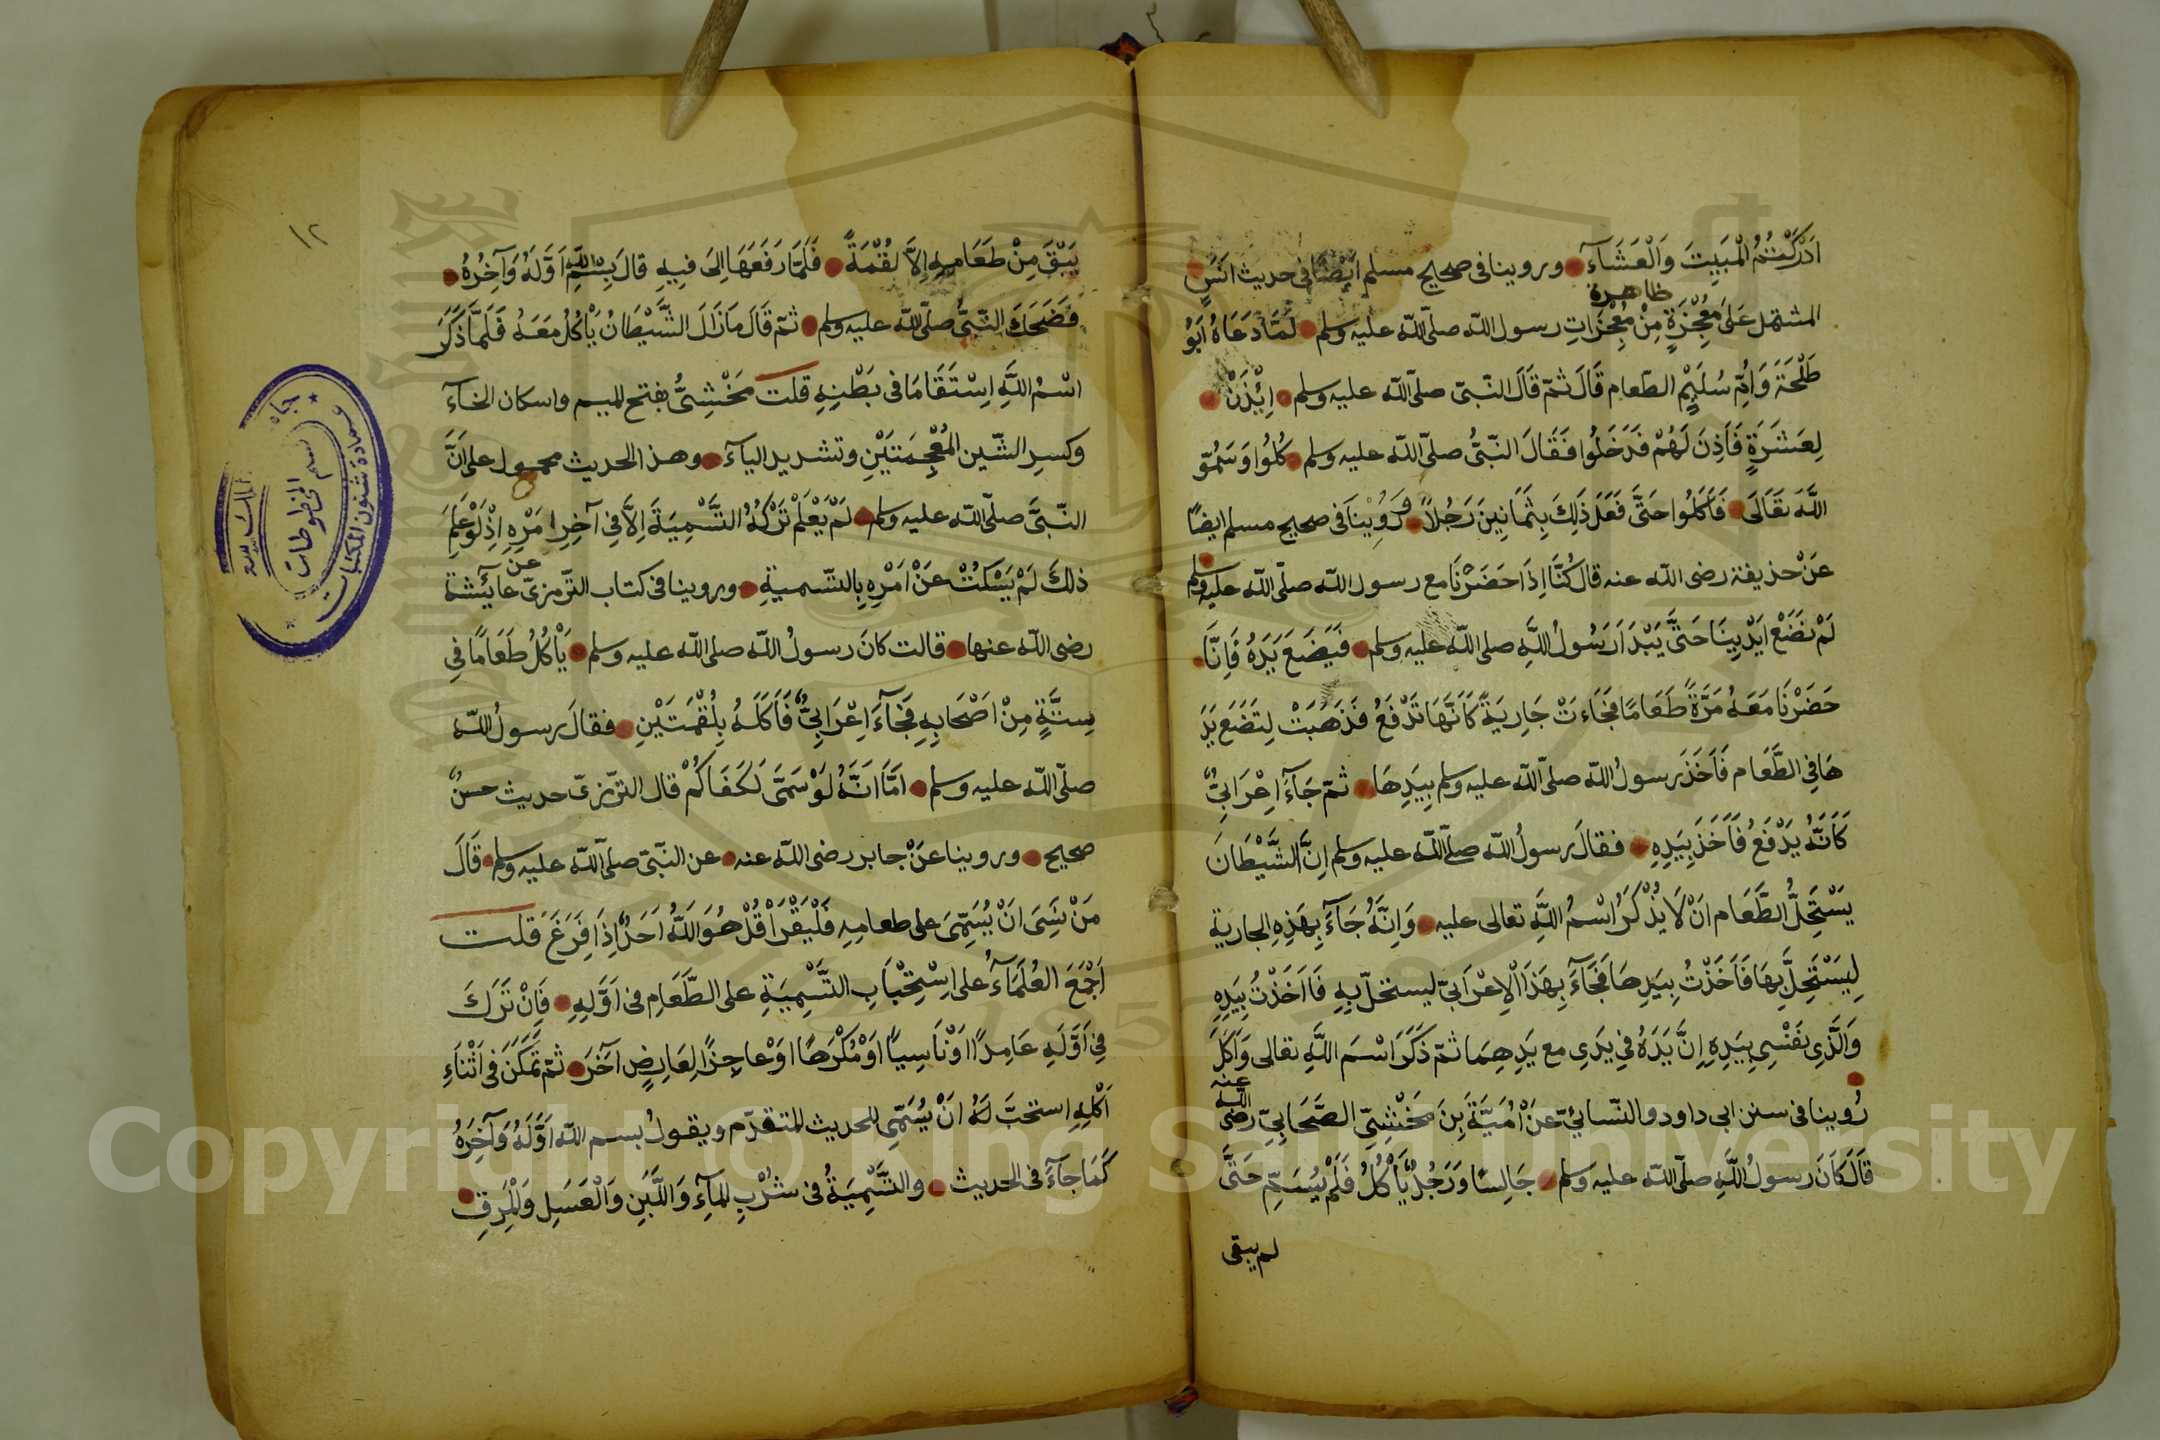 اَدْرَكْتُمُ الْمَبِيتَ وَالْعَشَآءَ وروينا فى صحيح مسلم اَيْضًا فى حديث اَنَسٍ
ظاهرة
المشتمل عَلَى مُعْجِزَةٍ مِنْ مُعْجِزَاتِ رسول الله صلّى اللّه عليه وسلم لَمَّا دَعَاهُ اَبُوْ
طَلْحَةَ وَاُمّ سُلَيْمٍ الطّعام قَالَ ثمّ قَالَ النّبىّ صلّى اللّه عليه وسلم اِئْذَنْ
لِعَشَرَةٍ فَاَذِنَ لَهُمْ فَدَخَلُوا فَقَالَ النّبىُّ صلّى اللّه عليه وسلم كُلُوا وَسَمُّو
اللَّهَ تَعَالَى فَاَكَلُوا حَتَّى فَعَلَ ذَلِكَ بِثَمَانِينَ رَجُلاً وَرُوِينَا فى صحيح مسلم ايضًا
عَنْ حذيفة رضى اللّه عنه قال كُنَّا اِذَا حَضَرْنَا مع رسول اللّه صلّى اللّه عليه وسلم
لَمْ نَضَعْ اَيْدِينَا حَتَّى يَبْدَاَ رَسُولُ اللَّهِ صلى اللّه عليه وسلم فَيَضَعَ يَدَهُ فَاِنَّا
حَضَرْنَا مَعَهُ مَرَّةً طَعَامًا فَجَاءَتْ جَارِيَةٌ كَاَنَّهَا تَدْفَعُ فَذَهَبَتْ لِتَضَعَ يَدَ
هَا فِى الطَّعَام فَاَخَذَ رسولُ اللّه صلّى اللّه عليه وسلم بِيَدِهَا ثمّ جَآءَ اِعْرَابِىٌّ
كَاَنَّهُ يَدْفَعُ فَاَخَذَ بِيَدِهِ فقالَ رسولُ اللّه صلّى اللّه عليه وسلم اِنَّ الشَّيْطَانَ
يَسْتَحِلُّ الطَّعَام اَنْ لَا يُذْكَرَ اسْمُ اللَّهِ تعالى عليه وَاِنَّهُ جَآءَ بِهَذِهِ الجارية
لِيَسْتَحِلَّ بِهَا فَاَخَذْتُ بِيَدِهَا فَجَآءَ بِهَذَا الْاِعْرَابىّ ليستحلّ بِهِ فَاَخَذْتُ بِيَدِهِ
وَالَّذِى نَفْسِى بِيَدِهِ اِنَّ يَدَهُ فِى يَدِى مع يَدِهِمَا ثمّ ذَكَرَ اسْمَ اللَّهِ تعالى وَاَكَلَ
رُوينا فى سنن ابى داود والنّسائىّ عَنْ اُمَيَّةَ بِنَ مَخْشِىّ الصّحَابِىّ رضى اللّه عنه
قَالَ كَانَ رسولُ اللَّهِ صلّى اللّه عليه وسلم جَالِسًا وَرَجُلٌ يَأْكُلُ فَلَمْ يُسَمِّ حَتَّى
لم يبقى
١٢
يَبْقَ مِنْ طَعَامِهِ اِلاَّ لُقْمَةً فَلَمَّا رَفَعَهَا اِلَى فِيهِ قالَ بِسْمِ اللَّهِ اَوَّلَهُ وَآخِرُهُ
فَضَحِكَ النّبىُّ صلّى اللّه عليه وسلم ثمّ قَالَ مَا زَالَ الشَّيْطَانُ يَأْكُلُ مَعَهُ فَلَمَّا ذَكَرَ
اسْمُ اللَّهِ اِسْتَقَا مَا فى بَطْنِهِ قلت مَخْشِىُّ بفتح الميم واسكان الخآءِ
وكسرِ الشّين المُعْجِمَتَيْنِ وتشديد اليآءَ وهذا الحديث محمول على اَنَّ
النّبىَّ صلّى اللّه عليه وسلم لَمْ يَعْلَمْ تَرْكَهُ التَّسْمِيَةَ اِلاَّ فِى آخِرِ اَمْرِهِ اِذْ لَوْ عَلِمَ
ذلكَ لَمْ يَسْكُتْ عَنْ اَمْرِهِ بِالتّسميةِ وروينا فى كتاب التّرمزىّ عن عائَشة
رضى اللّه عنها قالت كانَ رسولُ اللّه صلى اللّه عليه وسلم يَأْكُلُ طَعَامًا فِى
سِتَّةٍ مِنْ اَصْحَابِهِ فَجَآءَ اِعْرَابِىٌّ فَاَكَلَهُ بِلُقْمَتَيْنِ فقالَ رسولُ اللّه
صلّى اللّه عليه وسلم اَمَّا اَنَّهُ لَوْ سَمَّى لَكَفَاكُمْ قال الترّمزىّ حديث حسنٌ
صحيح وروينا عَنْ جابر رضى اللّه عنه عن النّبىّ صلّى اللّه عليه وسلم قَالَ
مَنْ نَسِىَ اَنْ يُسَمِّىَ على طعامِهِ فَلْيَقْرَاْ قُلْ هُوَ اللَّهُ اَحَدٌ اِذَا فَرَغَ قلت
اَجْمَعَ العُلَمَآءُ على اِسْتِحْبَابِ التَّسْمِيَةِ على الطَّعَامِ فى اَوَّلِهِ فَاِنْ تَرَكَ
فِى اَوَّلَهِ عَامِدًا اَوْ نَاسِيًا اَوْ مُكْرَهًا اوْ عاجِزًا لِعَارِضٍ آخَرَ ثمّ تَمَكَّنَ فى اَثْنَاءِ
اَكْلِهِ استحبَّ لَهُ اَنْ يُسَمِّى للحديث المتقدّم ويقولُ بسم اللّه اَوَّلَهُ وَآخِرَهُ
كَمَا جآءَ فى الحديث والتَّسْمِيَةُ فى شُرْبِ المآءِ وَاللَّبَنِ وَالْعَسَلِ وَالْمَرَقِ
عمادة شئون المكتبات
قسم المخطوطات
Copyright © King Saud University